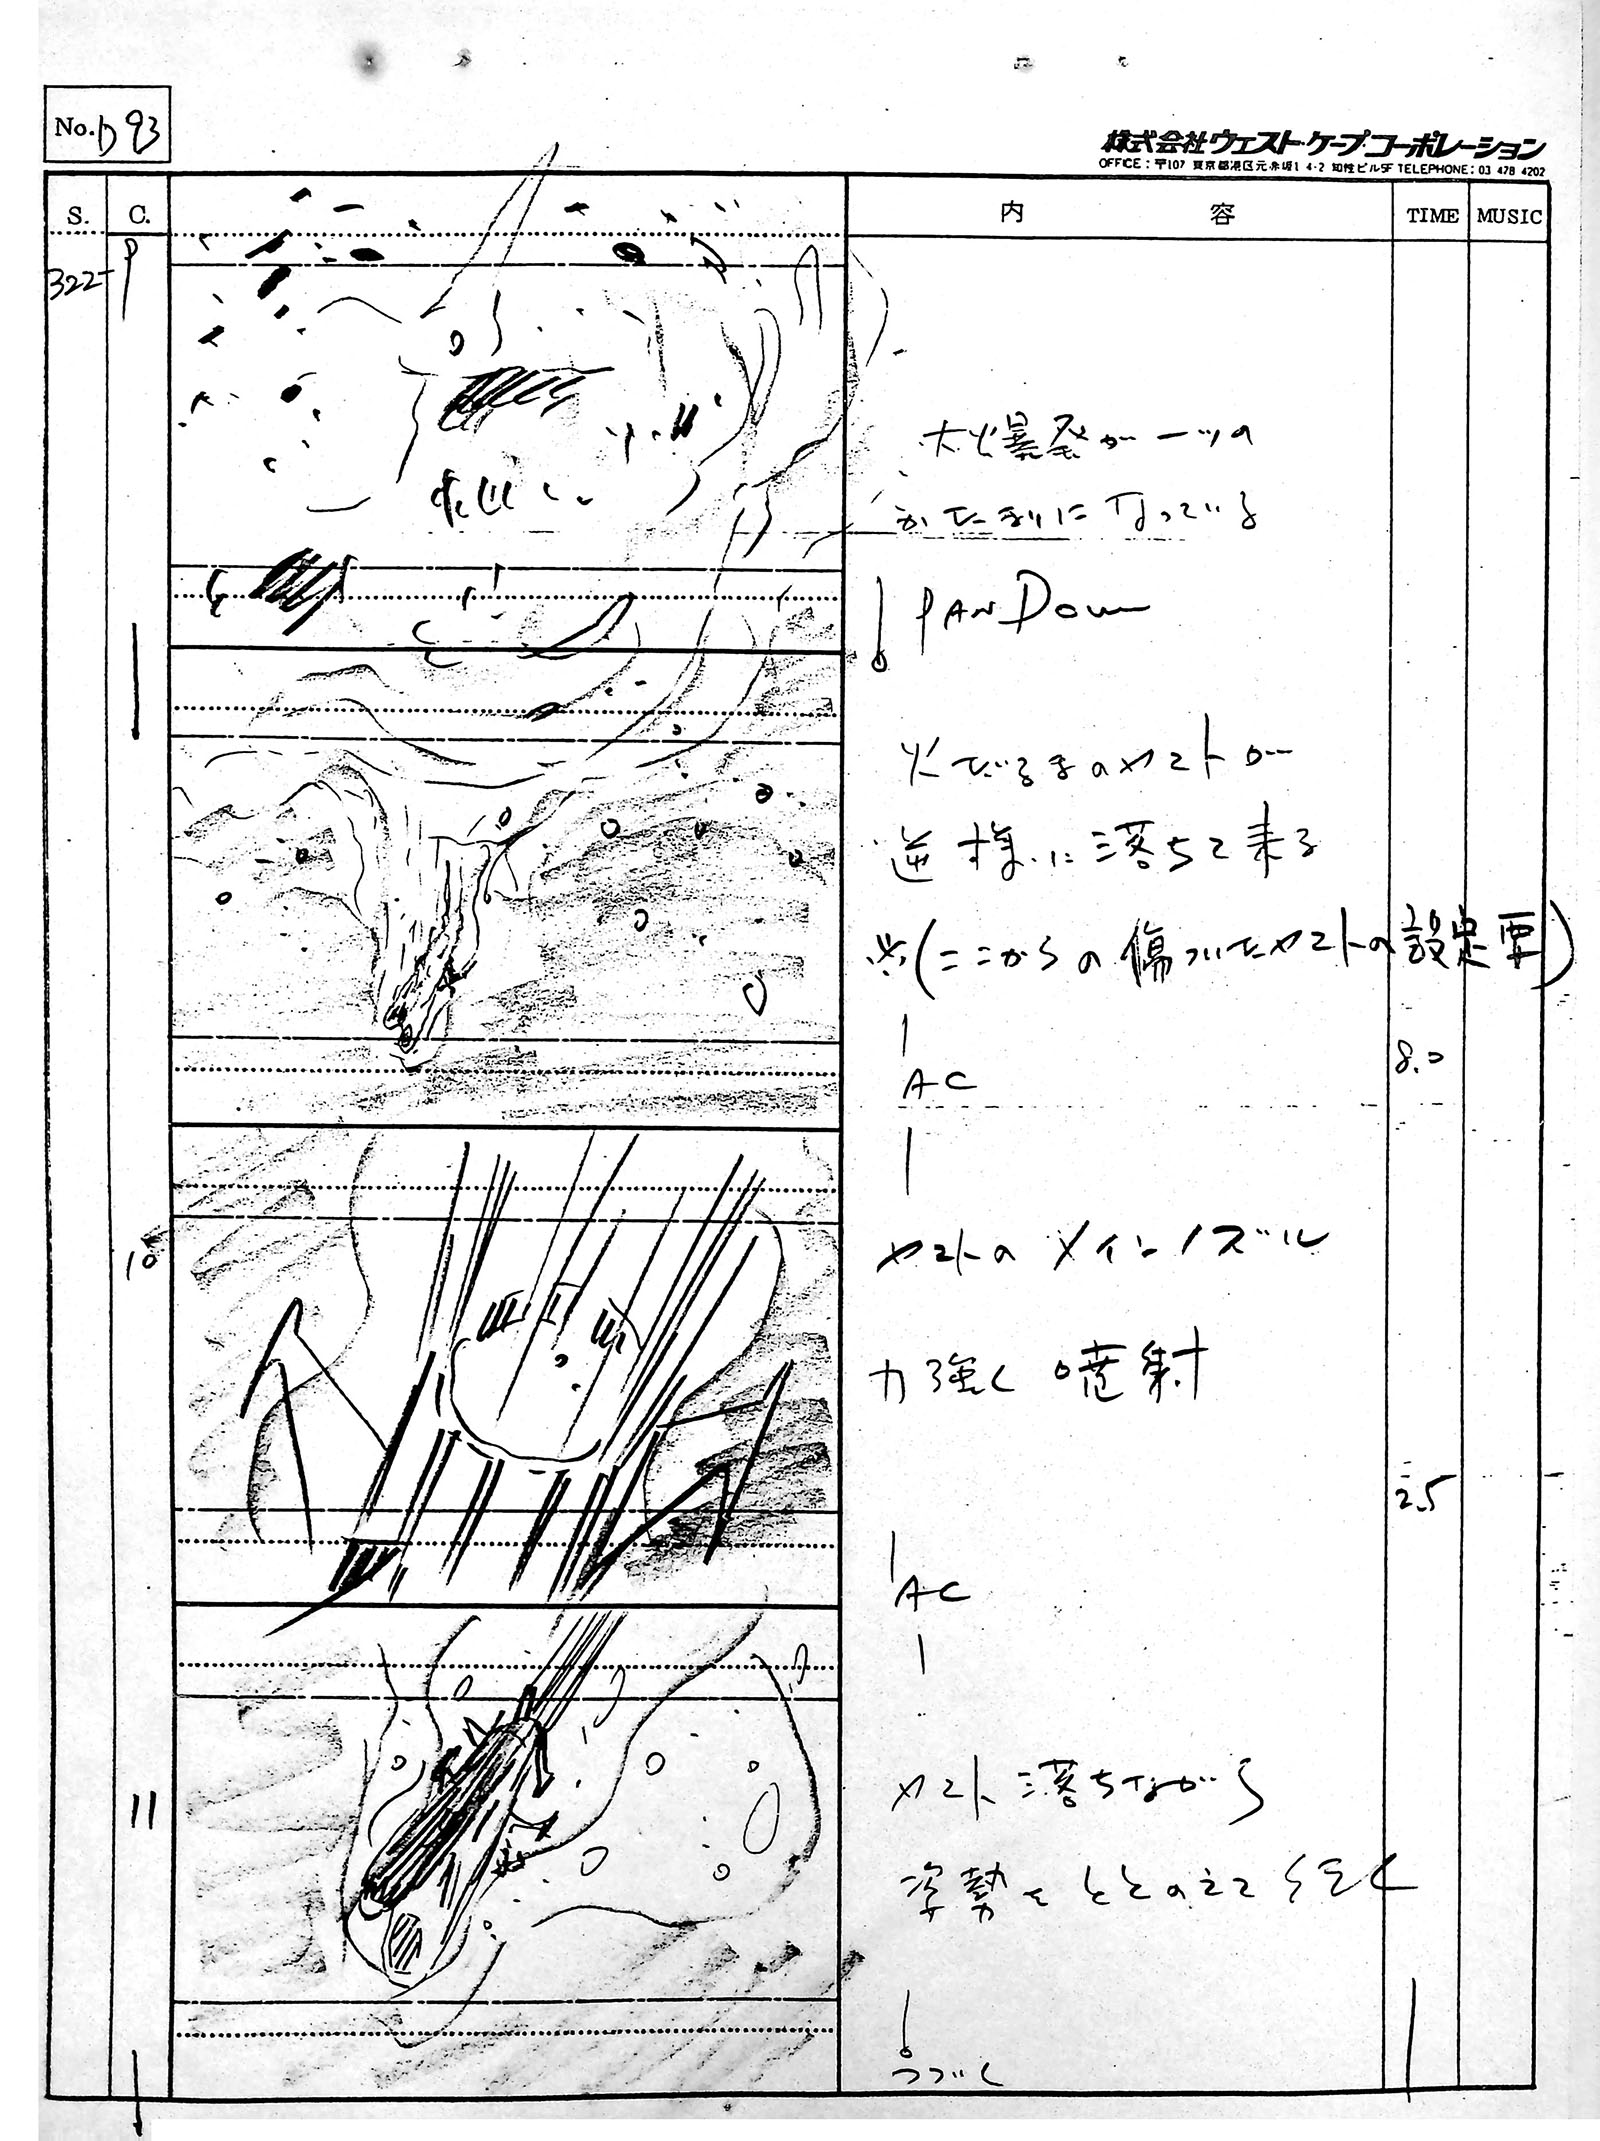 No. 93
株式会社ウェスト・ケープ・コーポレーション
OFFICE:〒107 東京都港区元赤坂1 4-2 知性ビル5F TELEPHONE:03 478 4202
S. C. 内 容 TIME MUSIC
322
9
大爆発が一ツの
かたまりになっている
PAN Down
火だるまのヤマトが
逆様に落ちて来る
※(ここからの傷ついたヤマトの設定要)
AC
8.0
10
ヤマトのメインノズル
力強く噴射
2.5
AC
11
ヤマト落ちながら
姿勢をととのえて
つづく